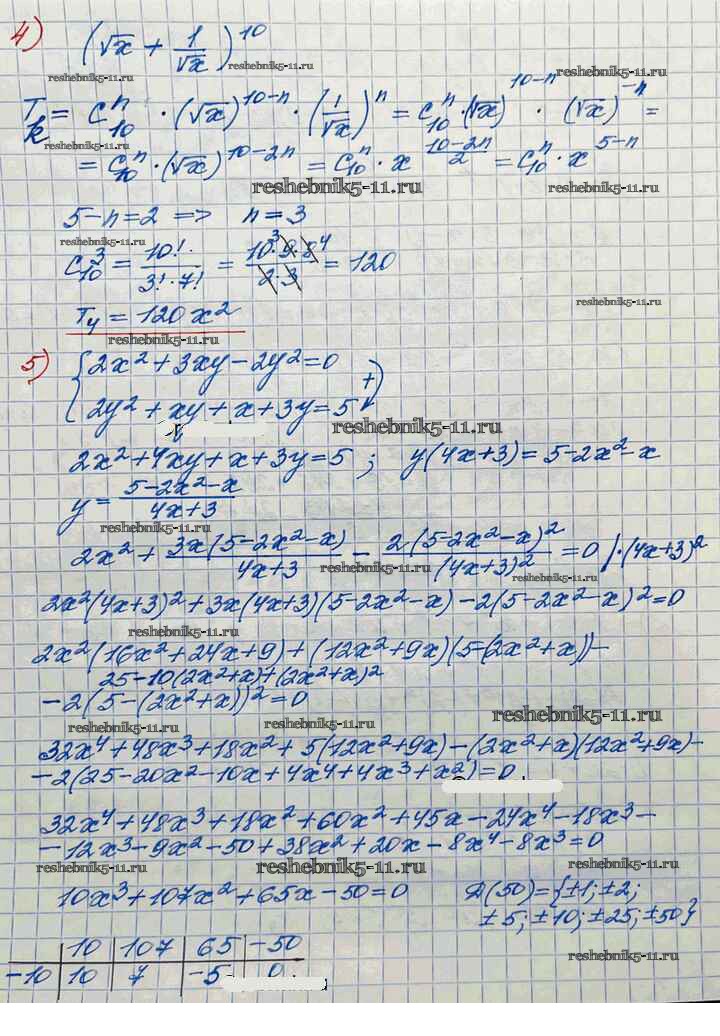 4) (√x + 1/√x)^10
reshebnik5-11.ru reshebnik5-11.ru
T_k = C_10^n · (√x)^(10-n) · (1/√x)^n = C_10^n · (√x)^(10-n) · (√x)^(-n) =
reshebnik5-11.ru reshebnik5-11.ru
= C_10^n · (√x)^(10-2n) = C_10^n · x^((10-2n)/2) = C_10^n · x^(5-n)
reshebnik5-11.ru reshebnik5-11.ru
5-n=2 => n=3
reshebnik5-11.ru
C_10^3 = 10!/(3!·7!) = (10·9^3·8^4)/(2·3) = 120
reshebnik5-11.ru
T_4 = 120x²
reshebnik5-11.ru
5) { 2x² + 3xy - 2y² = 0
2y² + xy + x + 3y = 5 (+)
reshebnik5-11.ru
2x² + 4xy + x + 3y = 5 ; y(4x+3) = 5-2x²-x
y = (5-2x²-x)/(4x+3)
reshebnik5-11.ru
2x² + 3x(5-2x²-x)/(4x+3) - 2(5-2x²-x)²/(4x+3)² = 0 /·(4x+3)²
reshebnik5-11.ru reshebnik5-11.ru
2x²(4x+3)² + 3x(4x+3)(5-2x²-x) - 2(5-2x²-x)² = 0
reshebnik5-11.ru
2x²(16x²+24x+9) + (12x²+9x)(5-(2x²+x)) -
25-10(2x²+x)+(2x²+x)²
-2(5-(2x²+x))² = 0
reshebnik5-11.ru reshebnik5-11.ru reshebnik5-11.ru
32x⁴+48x³+18x²+5(12x²+9x)-(2x²+x)(12x²+9x)-
-2(25-20x²-10x+4x⁴+4x³+x²)=0
32x⁴+48x³+18x²+60x²+45x-24x⁴-18x³-
-12x³-9x²-50+38x²+20x-8x⁴-8x³=0
reshebnik5-11.ru reshebnik5-11.ru reshebnik5-11.ru
10x³+107x²+65x-50=0 Д(50)={±1; ±2;
±5; ±10; ±25; ±50}
10 107 65 -50
reshebnik5-11.ru
-10 10 7 -5 0